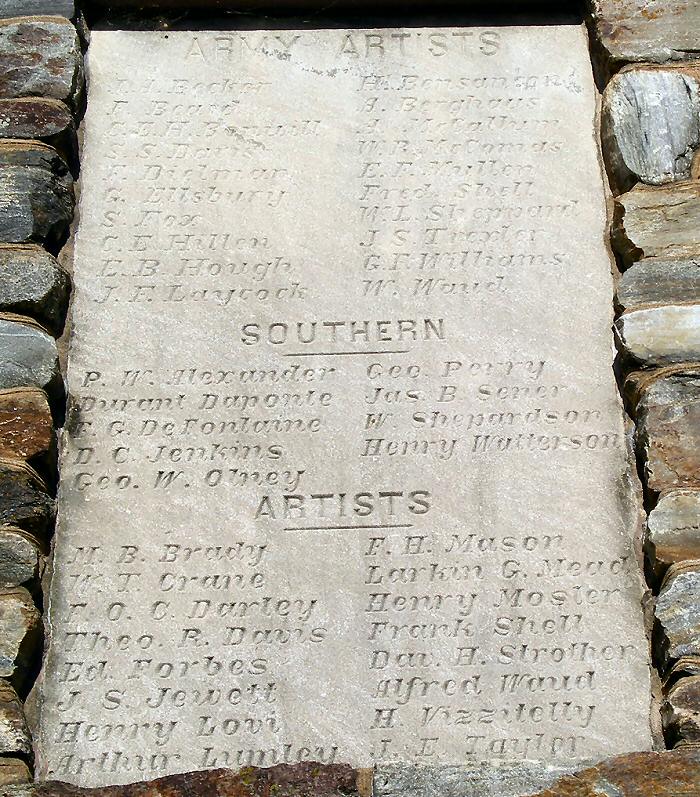 ARMY ARTISTS
J. A. Becker
F. Beard
C. E. H. Bonwill
S. S. Davis
F. Dielman
G. Ellsbury
S. Fox
C. E. Hillen
E. B. Hough
J. F. Laycock
H. Bensanson
A. Berghaus
A. McCallum
W. B. McComas
E. F. Mullen
Fred. Shell
W. L. Sheppard
J. S. Trexler
G. F. Williams
W. Waud
SOUTHERN
P. W. Alexander
Durant Daponte
F. G. DeFontaine
D. C. Jenkins
Geo. W. Olney
Geo. Perry
Jas. B. Sener
W. Shepardson
Henry Watterson
ARTISTS
M. B. Brady
W. T. Crane
F. O. C. Darley
Theo. R. Davis
Ed. Forbes
J. S. Jewett
Henry Lovi
Arthur Lumley
F. H. Mason
Larkin G. Mead
Henry Mosler
Frank Shell
Dav. H. Strother
Alfred Waud
H. Vizzitelly
J. E. Taylor